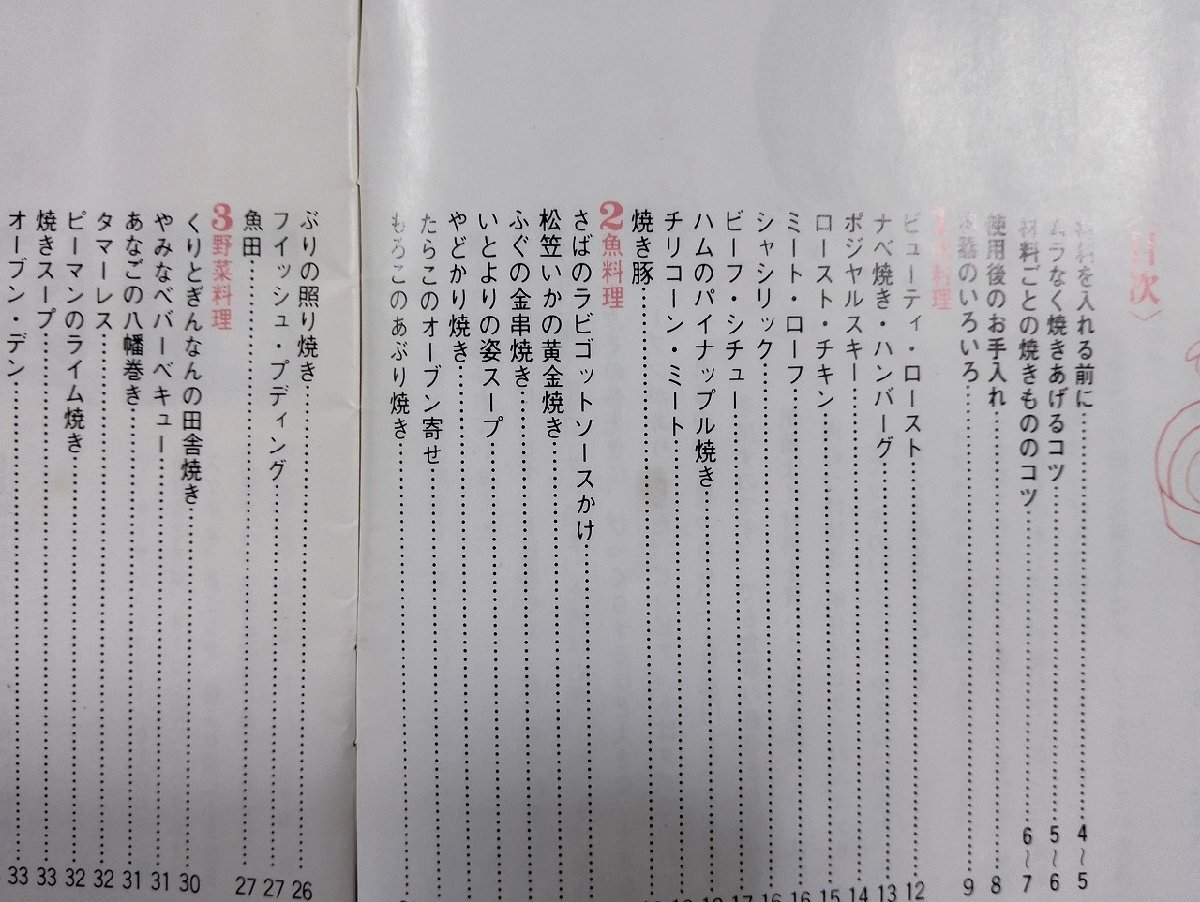 〈目次〉
材料を入れる前に 4〜5
ムラなく焼きあげるコツ 5〜6
材料ごとの焼きもののコツ 6〜7
使用後のお手入れ 8
器のいろいろ 9
料理
ビューティ・ロースト 12
ナベ焼き・ハンバーグ 13
ポジャルスキー 14
ロースト・チキン 15
ミート・ローフ 16
シャシリック 16
ビーフ・シチュー 17
ハムのパイナップル焼き
チリコーン・ミート
焼き豚
2魚料理
さばのラビゴットソースかけ
松笠いかの黄金焼き
ふぐの金串焼き
いとよりの姿スープ
やどかり焼き
たらこのオーブン寄せ
もろこのあぶり焼き
ぶりの照り焼き 26
フイッシュ・プディング 27
魚田 27
3野菜料理
くりとぎんなんの田舎焼き 30
やみなべバーベキュー 31
あなごの八幡巻き 31
タマーレス 32
ピーマンのライム焼き 32
焼きスープ 33
オーブン・デン 33